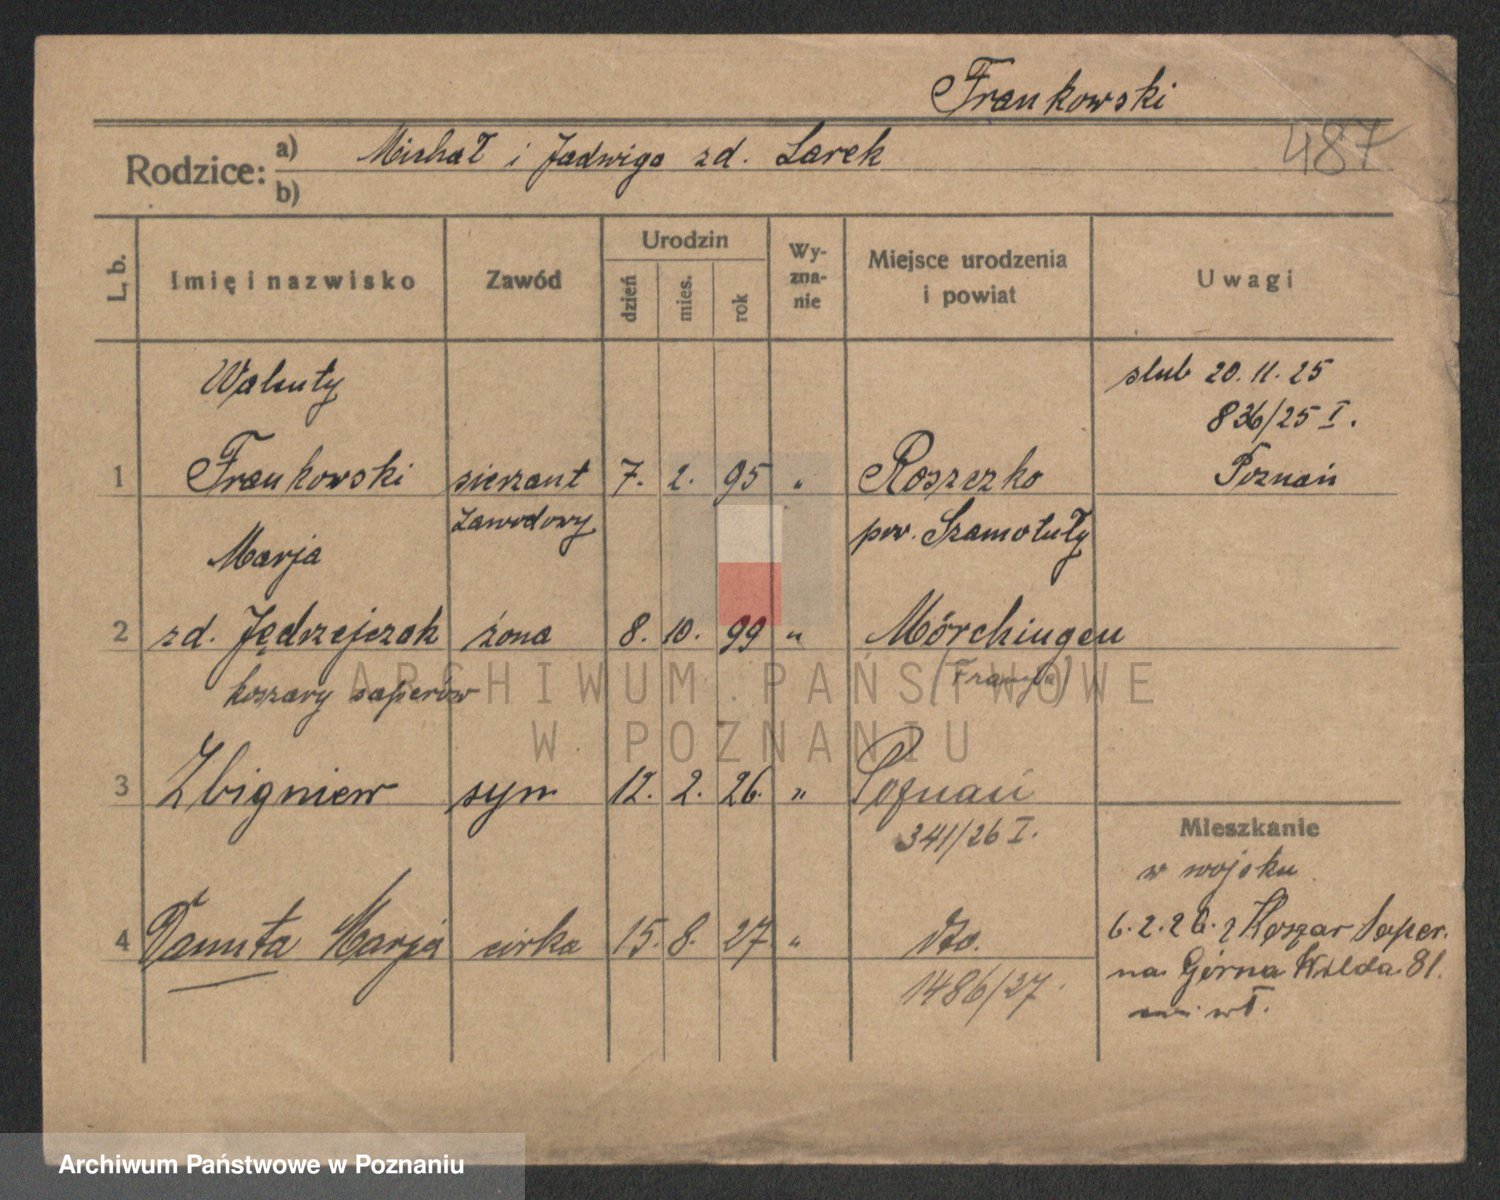 Frankowski
487
Rodzice: a) Michał i Jadwiga zd. Larek
b)
L. b. Imię i nazwisko Zawód Urodzin dzień mies. rok Wyznanie Miejsce urodzenia i powiat Uwagi
Walenty ślub 20. 11. 25
836/25 I.
1 Frankowski sierżant 7. 2. 95 „ Roszczko Poznań
zawodowy pow. Szamotuły
Marja
2 zd. Jędrzejczak żona 8. 10. 99 „ Mörchingen
koszary saperów (Francja)
3 Zbigniew syn 12. 2. 26. „ Poznań
341/26 I.
Mieszkanie
w wojsku
4 Danuta Marja córka 15. 8. 27 „ dto.
1486/27.
6. 2. 26. z Koszar Saper.
na Górna Wilda 81.
wł.
ARCHIWUM PAŃSTWOWE
W POZNANIU
Archiwum Państwowe w Poznaniu